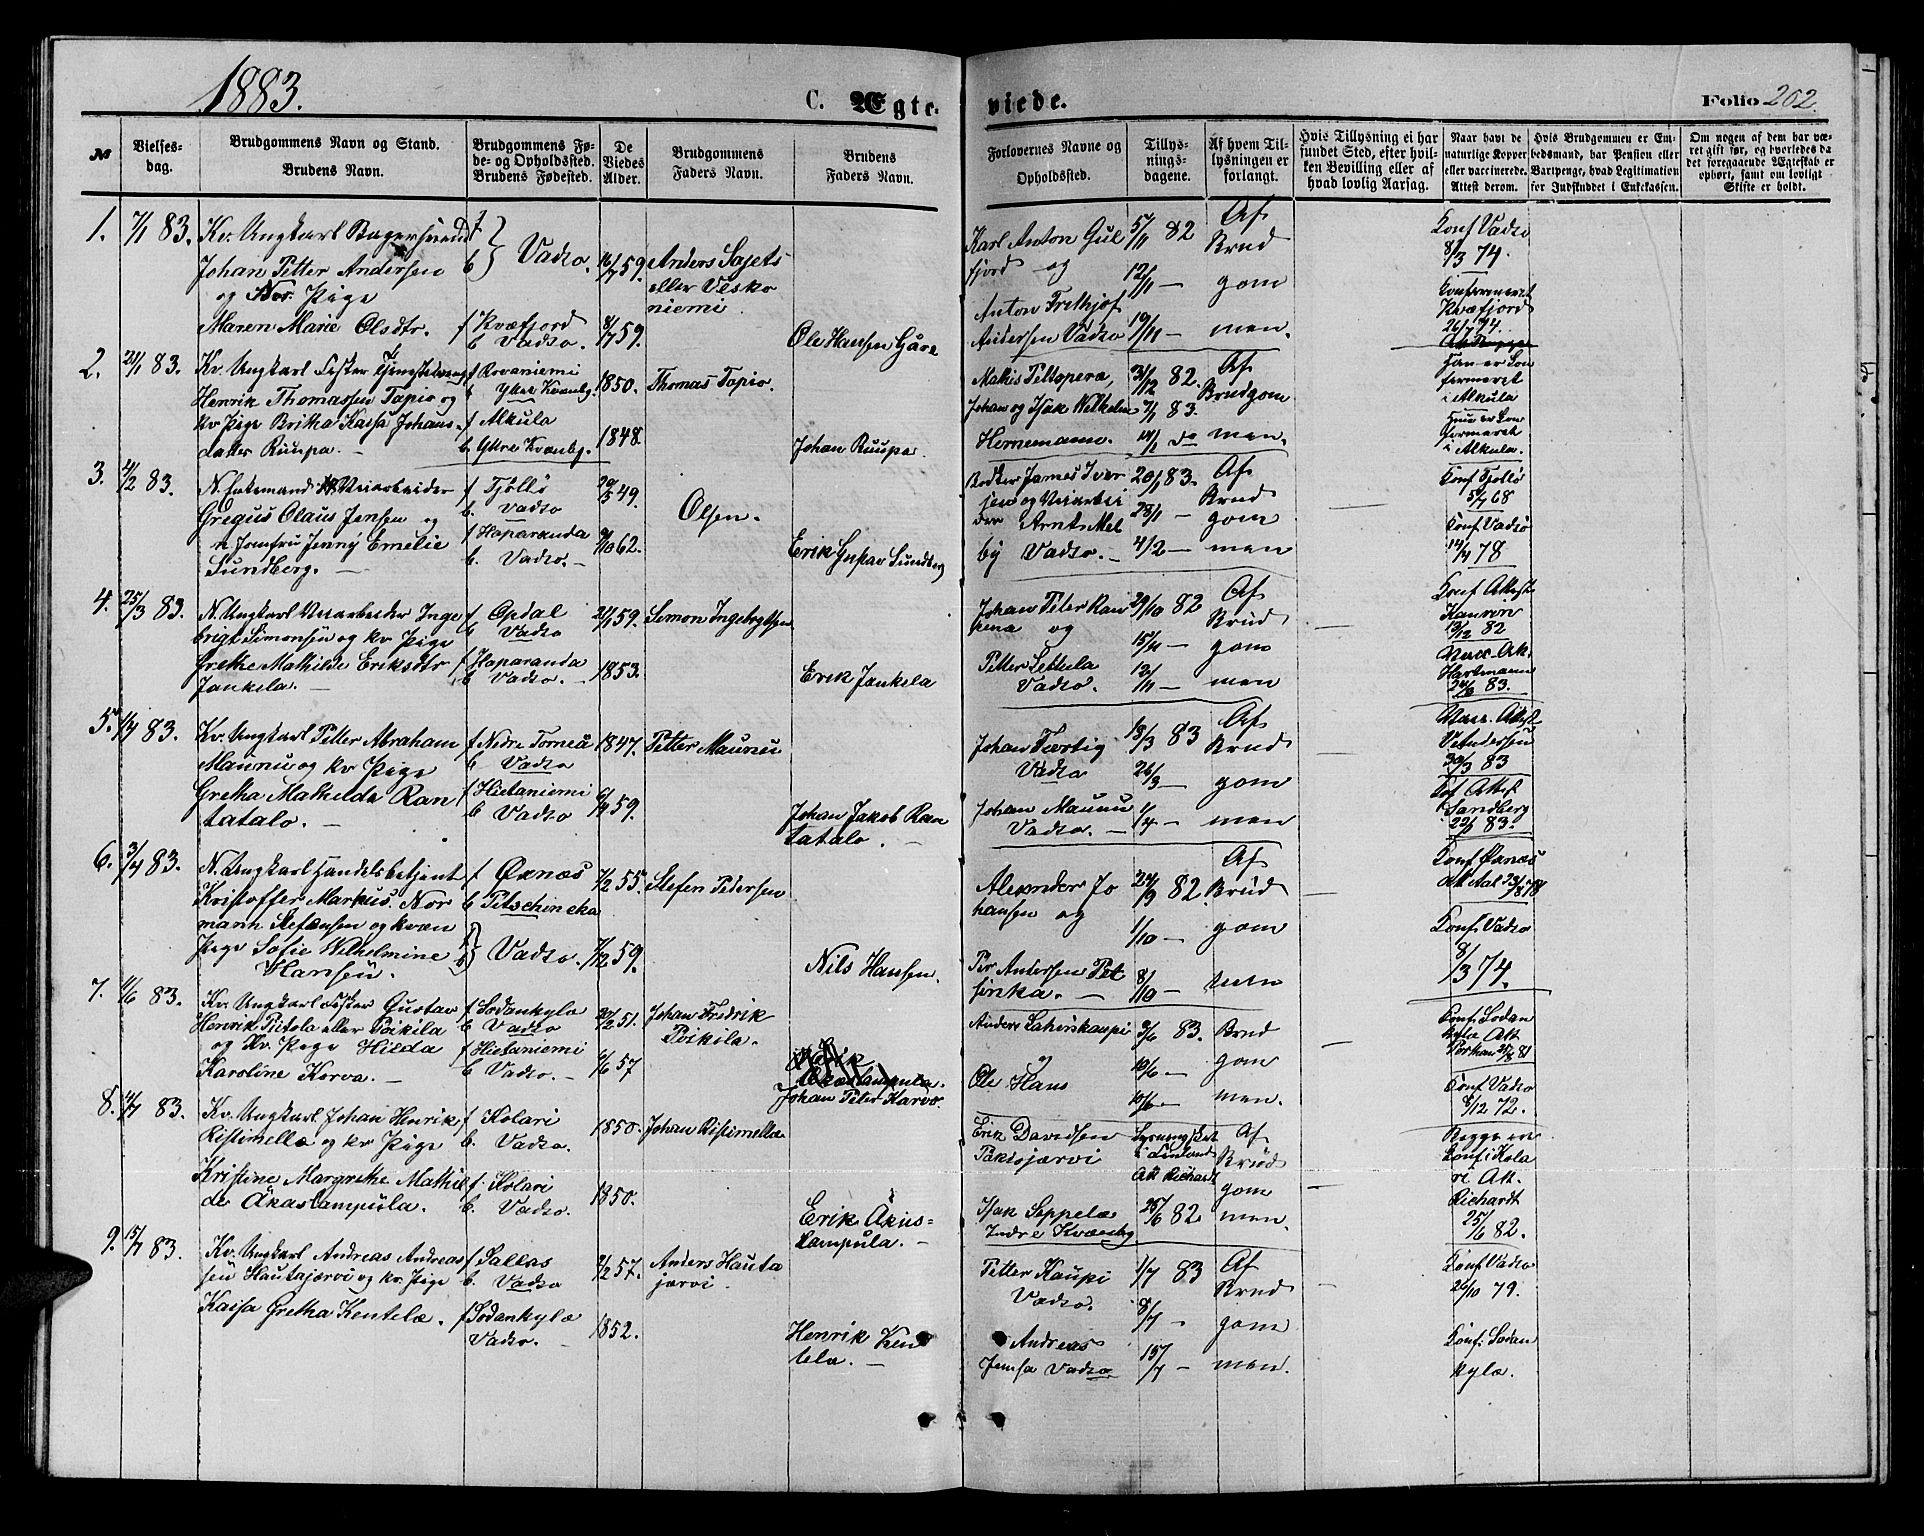 1883.
C. Ægte-
viede.
Folio 202.
№
Vielses-
dag.
Brudgommens Navn og Stand.
Brudens Navn.
Brudgommens Fø-
de- og Opholdssted.
Brudens Fødested.
De
Viedes
Alder.
Brudgommens
Faders Navn.
Brudens
Faders Navn.
Forlovernes Navne og
Opholdssted.
Tillys-
nings-
dagene.
Af hvem Til-
lysningen er
forlangt.
Hvis Tillysning ei har
fundet Sted, efter hvil-
ken Bevilling eller af
hvad lovlig Aarsag.
Naar havt de
naturlige Kopper
eller vaccinerede.
Attest derom.
Hvis Brudgommen er Em-
bedsmand, har Pension eller
Vartpenge, hvad Legitimation
for Indskuddet i Enkekassen.
Om nogen af dem har væ-
ret gift før, og hvorledes da
det foregaaende Ægteskab er
ophørt, samt om lovligt
Skifte er holdt.
1. 7/1 83.
Kv. Ungkarl Bagersvend
Johan Petter Andersen
og Nor. Pige
Maren Marie Olsdtr.
f
b } Vadsø.
f Kvæfjord
b Vadsø.
16/7 59.
8/7 59.
Anders Sajets
eller Vesko
niemi.
Ole Hansen Gåre
Karl Anton Gul
fjord og
Anton Frithjof
Andersen Vadsø
5/11 82
12/11 —
19/11 —
Af
Brud
gom
men.
Konf Vadsø
8/3 74.
Konfirmeret
Kvæfjord
26/7 74.
2. 21/1 83.
Kv. Ungkarl Fisker
Henrik Thomassen Tapio og
kv Pige Britha Kaisa Johans-
datter Ruupa. —
f Rovaniemi
b Ytre Kvænby.
f Alkula
b. Ytre Kvenby.
1850.
1848.
Thomas Tapio.
Johan Ruupa.
Mathis Peltopera,
Johan og Isak Wilhelm
Hernemann.
3/12 82.
7/1 83.
14/1 do
Af
Brudgom
men.
Han er Kon
fermeret
i Alkula
Hun er Kon
fermeret
i Alkula.
3. 4/2 83.
N. Enkemand Veiarbeider
Gregus Olaus Jensen og
n Jomfru Jenny Emelie
Sundberg. —
f Tjöllö
b. Vadsø
f Haparanda
b. Vadsø. —
29/5 49.
9/10 62.
Olsen.
Erik Gustav Sundberg
Bødker James Iver
sen og Veiarbei
der Arnt Mel
by Vadsø. —
20/1 83.
28/1 —
4/2 —
Af
Brud
gom
men
—
Konf Tjöllö
5/7 68
Conf. Vadsø
14/4 78
4. 25/3 83.
N. Ungkarl Veiarbeider Inge
brigt Simonsen og kv. Pige
Grethe Mathilde Eriksdtr
Jankila. —
f Opdal
b Vadsø
f Haparanda
b Vadsø. —
24/1 59.
1853.
Simon Ingebrigtsen
Erik Jankila
Johan Peter Ran
og
Petter Settela
Vadsø.
29/10 82
15/11 —
12/11 —
Af
Brud
gom
men
—
Konf Attest
13/12 82
Vacc. Att.
Hartmann
24/6 83.
5. 1/4 83.
Kv. Ungkarl Petter Abraham
Maunu og kv Pige
Gretha Mathilda Ran
tatalo. —
f Nedre Torneå
b Vadsø
f Hietaniemi
b Vadsø
1847.
6/4 59.
Petter Maunu
Johan Jakob Ran
tatalo. —
Johan Førtig
Vadsø
Johan Maunu
Vadsø. —
18/3 83
26/3 —
1/4 —
Af
Brud
gom
men
Vacc. Attest
V Andersen
30/3 83
Kof Attest
Sandberg
22/1 83.
6. 3/4 83.
N. Ungkarl Handelsbetjent
Kristoffer Markus Nor
mann Stefansen og kvæn
Pige Sofie Wilhelmine
Hansen.
f Øxnæs
b Petschincka
f
b } Vadsø.
7/2 55.
7/12 59.
Stefen Pedersen
Nils Hansen.
Alexander Jo
hansen og
Per Andersen Pet
sinka. —
24/9 82.
1/10 —
8/10 —
Af
Brud
gom
men
—
Konf Øxnæs
Konf. Vadsø
8/3 74.
7. 1/6 83.
Kv. Ungkarl Fisker Gustav
Henrik Pütola eller Poikila
og Kv. Pige Hilda
Karoline Korva. —
f Sodankyla
b Vadsø
f Hietaniemi
b Vadsø. —
20/2 51.
9/6 57
Johan Fredrik
Poikila.
Johan Peter Karvo.
Anders Sahviskaupi
og
Ole Hans
3/6 83.
10/6 —
10/6 —
Brud
gom
men.
—
Conf. Sodan
kyla Att
Konf Vadsø
8/12 72.
8. 14/7 83.
Kv. Ungkarl Johan Henrik
Ristimella og kv Pige
Kristine Margrethe Mathil
de Äkaslampula.
f Kolari
b. Vadsø.
f. Kolari
b. Vadsø.
1850.
1850.
Johan Ristimella
Erik Äkäs-
lampula. —
Erik Davidsen
Pakisjarvi
Isak Seppelæ
Indre Kvænby
Lysningsket
i Finland
Att Richardt
25/6 82.
Af
Brud
gom
men.
Begge er
Conf: i Kola
ri Att.
Richardt
25/6 82.
9. 15/7 83.
Kv. Ungkarl Andreas Andreas
sen Hautajærvi og kv. Pige
Kaisa Gretha Kentelæ.
f Sallas
b. Vadsø
f Sodankylæ
Vadsø.
2/2 57.
1852.
Anders Hauta
järvi.
Henrik Ken
tela. —
Petter Kaupi
Vadsø.
Andreas
Jemsa Vadsø
1/7 83
8/7 —
15/7 —
Af
Brud
gom
men.
—
Conf Vadsø
26/10 79.
Conf: Sodan
kylæ.